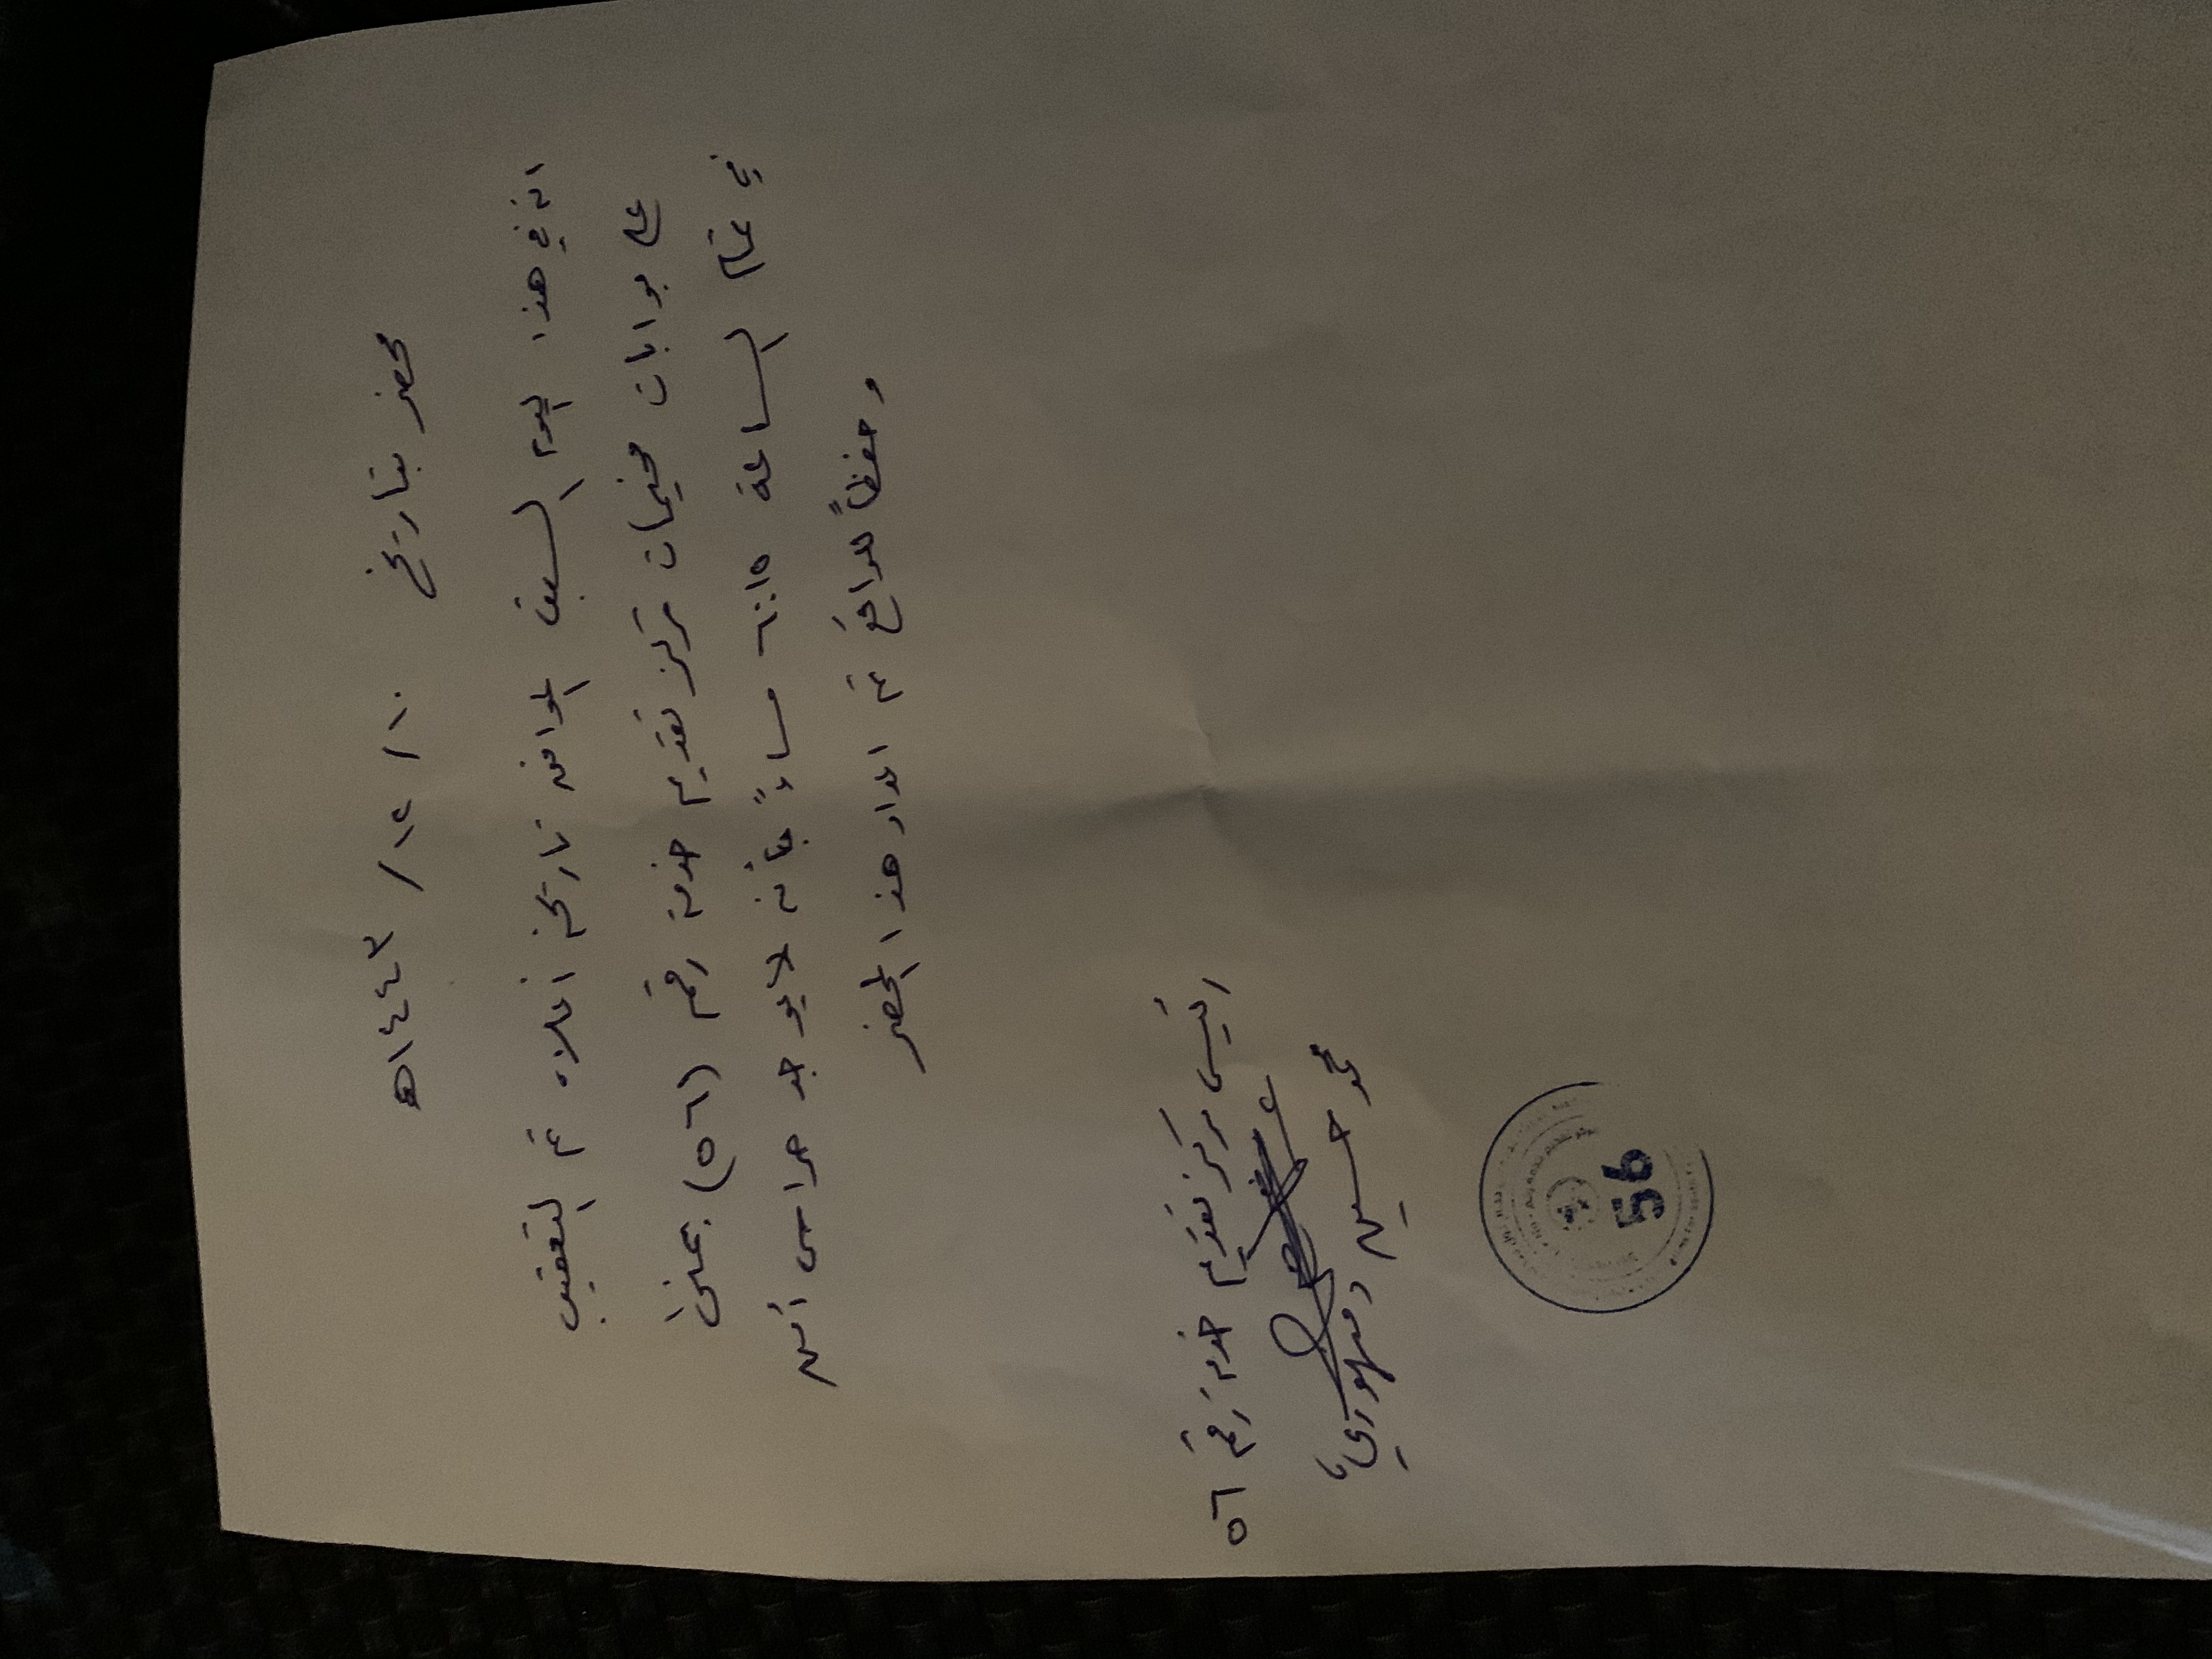 محضر بتاريخ ١٠/ ١٢/ ١٤٤٣هـ
انه في هذا اليوم السبت الموافق تاريخه أعلاه تم التعقيب
على بوابات مخيمات مركز تقديم خدمة رقم (٥٦) بمنى
في تمام الساعة ٦:١٥ مساءً بأنه لا يوجد حراس أمن
و حفظاً للواقع تم اعداد هذا المحضر
رئيس مركز تقديم خدمة رقم ٥٦
محمد حسين دمنهوري
56